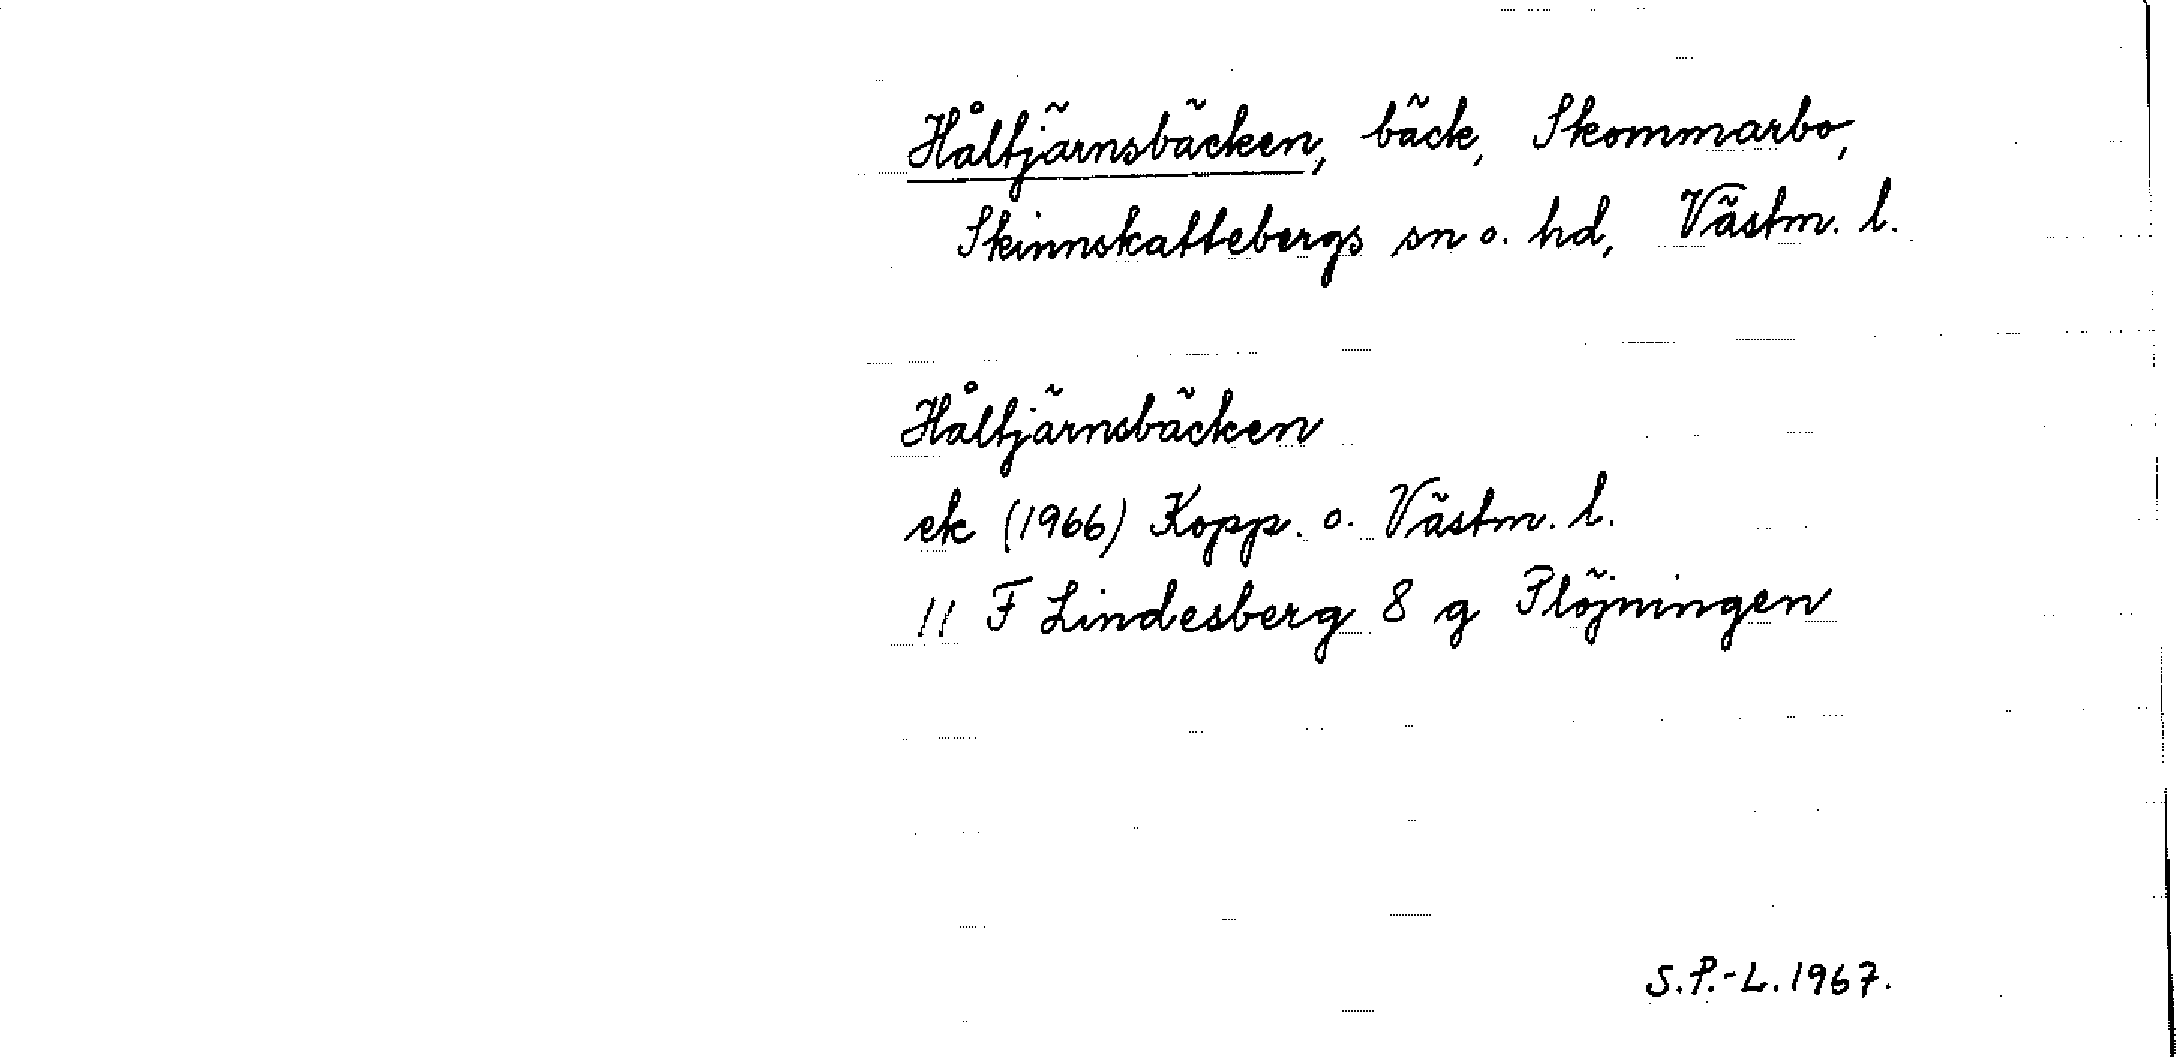 Håltjärnsbäcken, bäck, Skommarbo,
Skinnskattebergs sn o. hd, Västm. l.
Håltjärnsbäcken
ek (1966) Kopp. o. Västm. l.
11 F Lindesberg 8 g Plöjningen
S.P.-L. 1967.